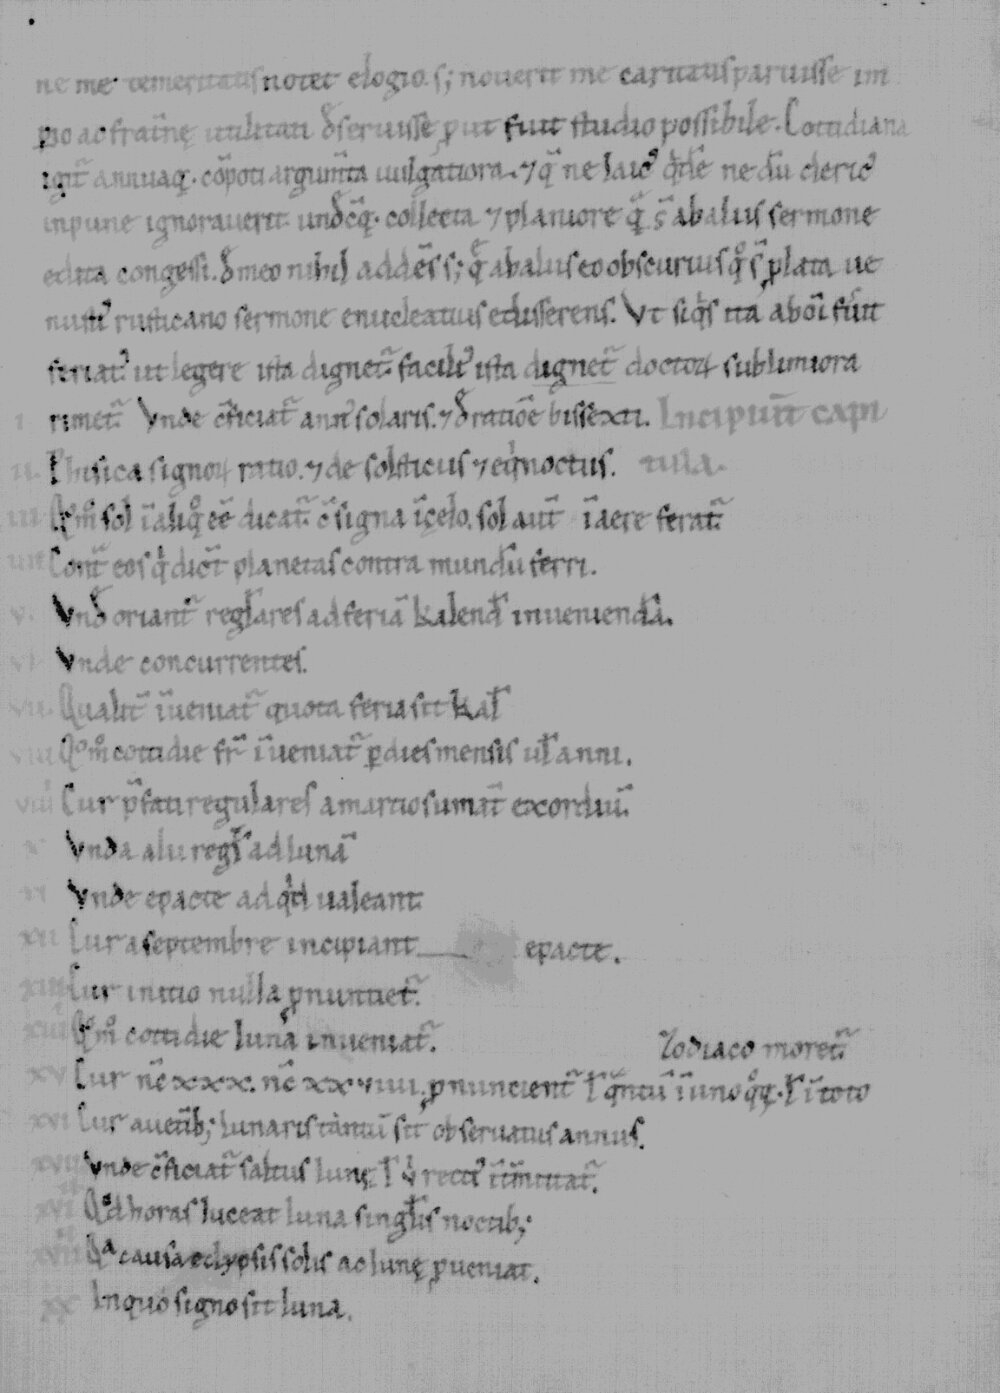 ne me temeritatis notet elogio. s; noverit me caritatis paruisse im
p̄io ac fraīnę utilitati d̄seruisse p̱ut fuit studio possibile. Cottidiana
igit̄ annuaq;. cōpoti argum̄ta uulgatiora. ⁊ q̄ ne laic᾿ q̄dē ne dū cleric᾿
inpune ignoraverit. und̄cq̄. collecta ⁊ planiore q̄ s̄ ab aliis sermone
edita congessi. d̄ meo nihil addēs s; q̄ ab aliis eo obscurius qͦ s̄ p̱lata ue
nusti᾿ rusticano sermone enucleatius edisserens. Vt siq̄s ita
feriat᾿ ut legere ista dignet̄ facili᾿ ista dignet̄ doctoꝝ sublimiora
i rimet̄. Vnde c̄ficiat̄ ann᾿ solaris. ⁊ d̄ ratiōe bissexti. Incipiūt capi
ii. Phisica signoꝝ ratio. ⁊ de solsticiis ⁊ eq̇noctiis. tula.
iii Qͦm̄ sol ī aliqͦ eē dicat̄. c̄ signa ī cęlo. sol aut̄ ī aere ferat̄
iiii Cont̄ eos q̇ dic̄t planetas contra mundū ferri.
v. Vnd̄ oriant̄ regl̄ares ad feriā kalend̄ inveniendā.
vi Vnde concurrentes.
vii. Qualit̄ īveniat̄ quota feria sit kal̄
viii Qͦm̄ cottidie fr̄ īveniat̄ ꝑ dies mensis ul̄ anni.
viiii Cur p̄fati regulares a martio sumat̄ exordiū.
x Vnda alii regl̄ ad lunā
xi Vnde epacte ad q̇d ualeant.
xii Cur a septembre incipiant epacte.
xiii Cur initio nulla p̱nuntiet̄.
xiiii Qͦm̄ cottidie lunā inveniat̄.
Zodiaco moret̄
xv Cur nc̄ xxx. nc̄ xxviiii p̱nuncient̄ l̄ q̄ntū ī unoqͦq;. l̄ ī toto
xvi Cur a uet̄ib; lunaris tantū sit observatus annus.
xvii Vnde c̄ficiat̄ saltus lunę l̄ recti᾿
xviii Qͦd horas luceat luna singl̄is noctib;
xviiii Qᵃ causa eclypsis solis ac lunę p̱veniat.
xx In quo signo sit luna.